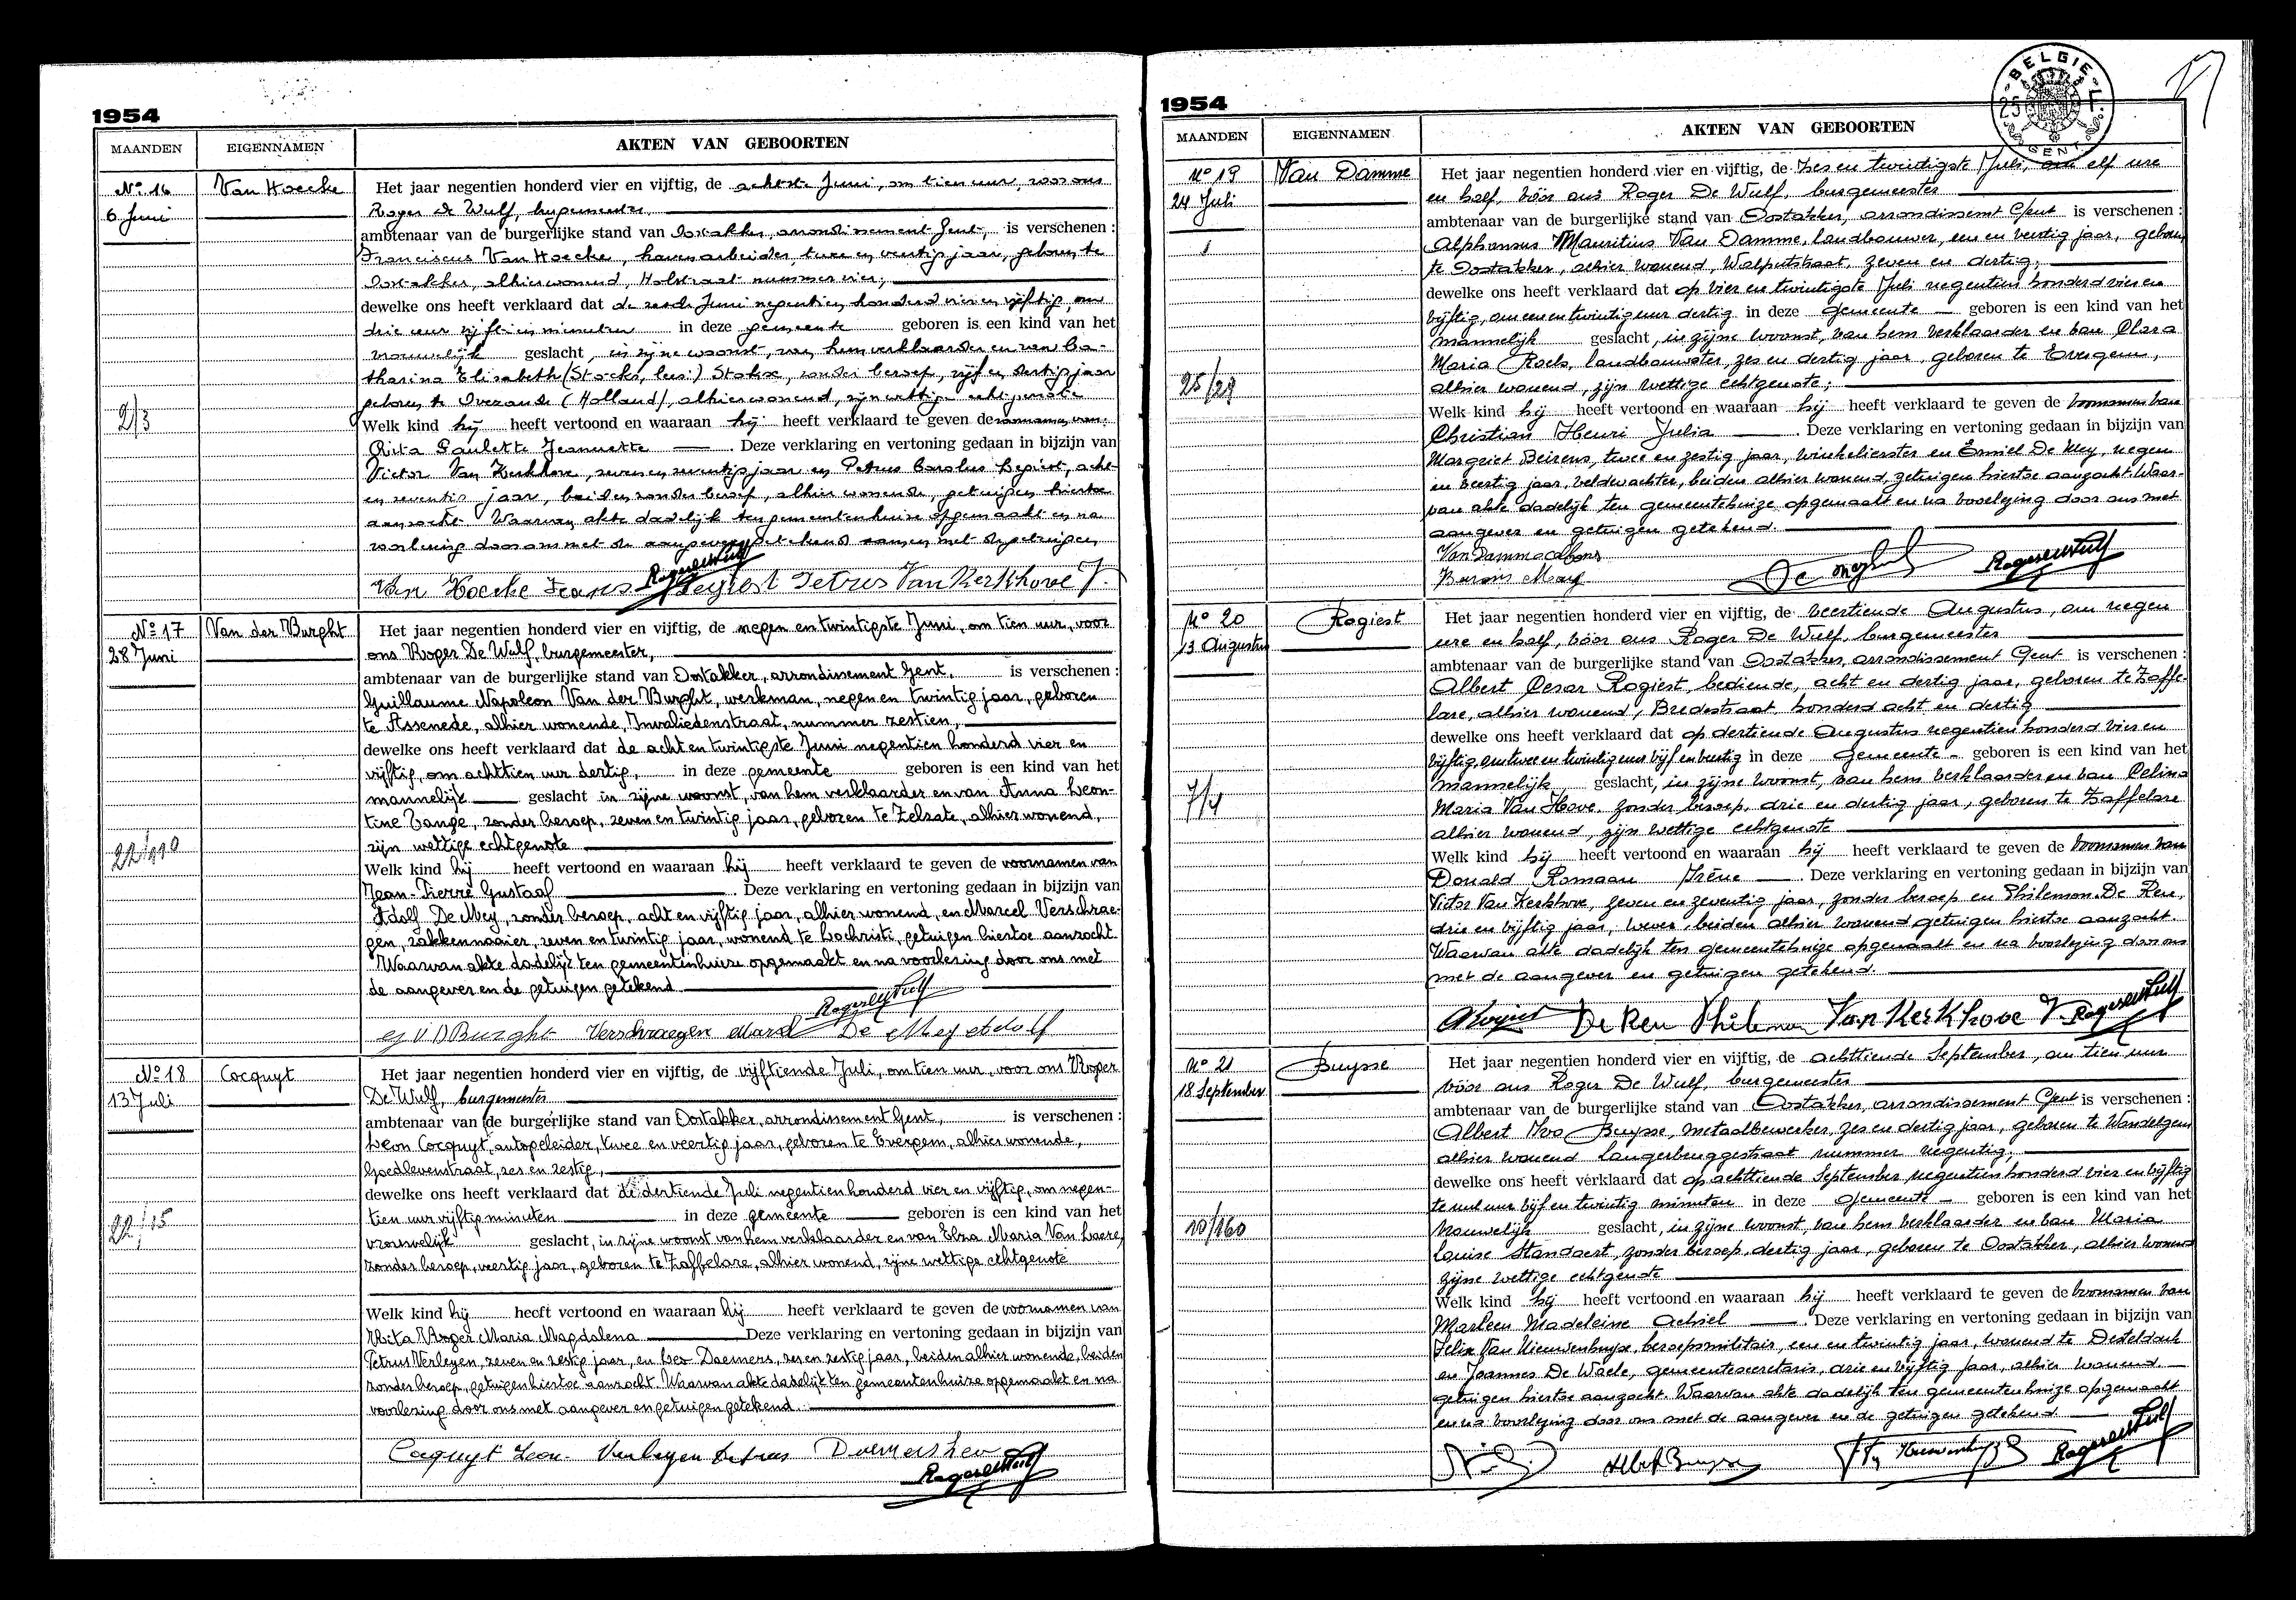 1954
MAANDEN EIGENNAMEN AKTEN VAN GEBOORTEN
No 16 Van Hoecke
6 Juni
Het jaar negentien honderd vier en vijftig, de achtste Juni, om tien uur, voor ons
Roger De Wulf, burgemeester,
ambtenaar van de burgerlijke stand van Oostakker, arrondissement Gent, is verschenen :
Franciscus Van Hoecke, havenarbeider, twee en veertig jaar, geboren te
Oostakker, alhier wonend, Holstraat nummer vier,
dewelke ons heeft verklaard dat de zesde Juni negentien honderd vier en vijftig, om
drie uur vijftien minuten in deze gemeente geboren is een kind van het
vrouwelijk geslacht, in zijne woonst, van hem verklaarder en van Ca-
tharina Elisabeth (Stocks, lees:) Stokx, zonder beroep, vijf en dertig jaar
geboren te (Holland), alhier wonend, zijn wettige echtgenote
2/3
Welk kind hij heeft vertoond en waaraan hij heeft verklaard te geven de voornamen van:
Rita Paulette Jeannette . Deze verklaring en vertoning gedaan in bijzijn van
Victor Van Kerkhove, zeven en zeventig jaar en Petrus Carolus acht
en zeventig jaar, beiden zonder beroep, alhier wonende, getuigen hiertoe
aanzocht. Waarvan akte dadelijk ten gemeentenhuize opgemaakt en na
voorlezing door ons met de aangever getekend samen met de getuigen
Van Hoecke Frans RogerDeWulf Petrus Van Kerkhove V.
No 17 Van der Burght
28 Juni
Het jaar negentien honderd vier en vijftig, de negen en twintigste Juni, om tien uur, voor
ons Roger De Wulf, burgemeester,
ambtenaar van de burgerlijke stand van Oostakker, arrondissement Gent, is verschenen :
Guillaume Napoleon Van der Burght, werkman, negen en twintig jaar, geboren
te Assenede, alhier wonende, Invaliedenstraat, nummer zestien,
dewelke ons heeft verklaard dat de acht en twintigste Juni negentien honderd vier en
vijftig, om achttien uur dertig, in deze gemeente geboren is een kind van het
mannelijk geslacht in zijne woonst, van hem verklaarder en van Anna Leon-
tine Tange, zonder beroep, zeven en twintig jaar, geboren te Zelzate, alhier wonend,
zijn wettige echtgenote
Welk kind hij heeft vertoond en waaraan hij heeft verklaard te geven de voornamen van
Jean-Pierre Gustaaf . Deze verklaring en vertoning gedaan in bijzijn van
Adolf De Mey, zonder beroep, acht en vijftig jaar, alhier wonend, en Marcel Verschrae-
gen, zakkennaaier, zeven en twintig jaar, wonend te Lochristi, getuigen hiertoe aanzocht
Waarvan akte dadelijk ten gemeentenhuize opgemaakt en na voorlezing door ons met
de aangever en de getuigen getekend
RogerDeWulf
G V D Burght Verschraegen Marcel De Mey Adolf
No 18 Cocquyt
13 Juli
Het jaar negentien honderd vier en vijftig, de vijftiende Juli, om tien uur, voor ons Roger
De Wulf, burgemeester
ambtenaar van de burgerlijke stand van Oostakker, arrondissement Gent, is verschenen :
Leon Cocquyt, autogeleider, twee en veertig jaar, geboren te Evergem, alhier wonende,
Goedlevenstraat, zes en zestig,
dewelke ons heeft verklaard dat de dertiende Juli negentien honderd vier en vijftig, om negen-
tien uur vijftig minuten in deze gemeente geboren is een kind van het
vrouwelijk geslacht, in zijne woonst van hem verklaarder en van Elza Maria Van Laere,
zonder beroep, veertig jaar, geboren te Zaffelare, alhier wonend, zijne wettige echtgenote
22/15
Welk kind hij heeft vertoond en waaraan hij heeft verklaard te geven de voornamen van
Rita Roger Maria Magdalena Deze verklaring en vertoning gedaan in bijzijn van
Petrus Verleyen, zeven en zestig jaar, en Leo Daemers, zes en zestig jaar, beiden alhier wonende, beiden
zonder beroep, getuigen hiertoe aanzocht. Waarvan akte dadelijk ten gemeentenhuize opgemaakt en na
voorlezing door ons met aangever en getuigen getekend.
Cocquyt Leon. Verleyen Petrus Daemers Leo
RogerDeWulf
1954
BELGIE 25 GENT
MAANDEN EIGENNAMEN AKTEN VAN GEBOORTEN
No 19 Van Damme
24 Juli
Het jaar negentien honderd vier en vijftig, de zes en twintigste Juli, om elf ure
en half, vóór ons Roger De Wulf, burgemeester
ambtenaar van de burgerlijke stand van Oostakker, arrondissemt Gent is verschenen :
Alphonsus Mauritius Van Damme, landbouwer, een en veertig jaar, geboren
te Oostakker, alhier wonend, Walputstraat, zeven en dertig;
dewelke ons heeft verklaard dat op vier en twintigste Juli negentien honderd vier en
vijftig, om een en twintig uur dertig in deze gemeente geboren is een kind van het
mannelijk geslacht, in zijne woonst, van hem verklaarder en van Clara
Maria Roels, landbouwster, zes en dertig jaar, geboren te Evergem,
alhier wonend, zijn wettige echtgenote;
Welk kind hij heeft vertoond en waaraan hij heeft verklaard te geven de voornamen van
Christian Henri Julia . Deze verklaring en vertoning gedaan in bijzijn van
Margriet Beirens, twee en zestig jaar, winkelierster en Emiel De Mey, negen
en veertig jaar, veldwachter, beiden alhier wonend, getuigen hiertoe aangezocht. Waar-
van akte dadelijk ten gemeentehuize opgemaakt en na voorlezing door ons met
aangever en getuigen getekend.
Van Damme Alfons
De Mey RogerDeWulf
No 20 Rogiest
13 Augustus
Het jaar negentien honderd vier en vijftig, de veertiende Augustus, om negen
ure en half, vóór ons Roger De Wulf, burgemeester
ambtenaar van de burgerlijke stand van Oostakker, arrondissement Gent is verschenen :
Albert Cesar Rogiest, bediende, acht en dertig jaar, geboren te Zaffe-
lare, alhier wonend, Bredestraat, honderd acht en dertig
dewelke ons heeft verklaard dat op dertiende Augustus negentien honderd vier en
vijftig, om twee en twintig uur vijf en veertig in deze gemeente geboren is een kind van het
mannelijk geslacht, in zijne woonst, van hem verklaarder en van Celina
Maria Van Hove, zonder beroep, drie en dertig jaar, geboren te Zaffelare
7/4
alhier wonend, zijn wettige echtgenote
Welk kind hij heeft vertoond en waaraan hij heeft verklaard te geven de voornamen van
Donald Romaan Irène . Deze verklaring en vertoning gedaan in bijzijn van
Victor Van Kerkhove, zeven en zeventig jaar, zonder beroep en Philemon De Reu,
drie en vijftig jaar, wever, beiden alhier wonend getuigen hiertoe aanzocht.
Waarvan akte dadelijk ten gemeentehuize opgemaakt en na voorlezing door ons
met de aangever en getuigen getekend.
ARogiest De Reu Philemon Van Kerkhove V. RogerDeWulf
No 21 Buysse
18 September
Het jaar negentien honderd vier en vijftig, de achttiende September, om tien uur
vóór ons Roger De Wulf, burgemeester
ambtenaar van de burgerlijke stand van Oostakker, arrondissement Gent is verschenen :
Albert Ivo Buysse, metaalbewerker, zes en dertig jaar, geboren te Wondelgem
alhier wonend Langerbruggestraat nummer negentig;
dewelke ons heeft verklaard dat op achttiende September negentien honderd vier en vijftig
te nul uur vijf en twintig minuten in deze gemeente geboren is een kind van het
vrouwelijk geslacht, in zijne woonst, van hem verklaarder en van Maria
10/160
Louise Standaert, zonder beroep, dertig jaar, geboren te Oostakker, alhier wonend
zijne wettige echtgenote
Welk kind hij heeft vertoond en waaraan hij heeft verklaard te geven de voornamen van
Marleen Madeleine Achiel . Deze verklaring en vertoning gedaan in bijzijn van
Felix Van Nieuwenhuyse, beroepsmilitair, een en twintig jaar, wonend te Desteldonk
en Joannes De Waele, gemeentesecretaris, drie en vijftig jaar, alhier wonend
getuigen hiertoe aangezocht. Waarvan akte dadelijk ten gemeentenhuize opgemaakt
en na voorlezing door ons met de aangever en de getuigen getekend
Albert Buysse RogerDeWulf